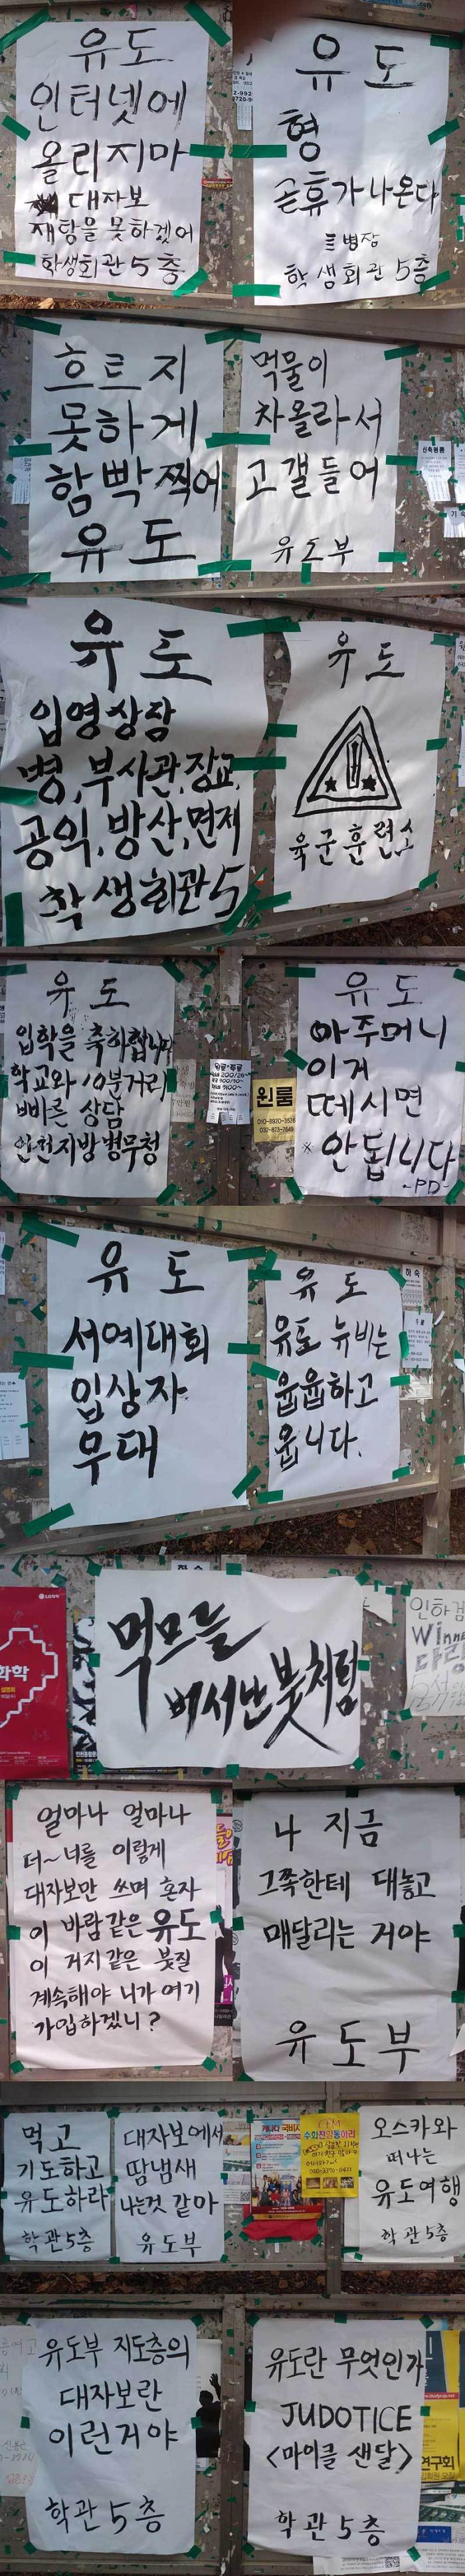 유도
인터넷에
올리지마
대자보
재탕을 못하겠어
학생회관 5층
유도
형
곧휴가나온다
병장
학생회관 5층
흐트지
못하게
함빡찍어
유도
먹물이
차올라서
고갤들어
유도부
유도
입영상담
병,부사관,장교,
공익,방산,면제
학생회관5
유도
육군훈련소
유도
입학을 축하합니다
학교와 10분거리
빠른 상담
인천지방병무청
원룸
010-8920-3526
032-873-7648
유도
아주머니
이거
떼시면
※ 안됩니다
-PD-
유도
서예대회
입상자
우대
유도
유도 뉴비는
윱윱하고
웁니다.
하숙
먹므를
벼서난붓처럼
화학
설명회
인하검
Winne
다람
얼마나 얼마나
더~너를 이렇게
대자보만 쓰며 혼자
이 바람같은 유도
이 거지같은 붓질
계속해야 니가 여기
가입하겠니?
나 지금
그쪽한테 대놓고
매달리는 거야
유도부
먹고
기도하고
유도하라
학관5층
대자보에서
땀냄새
나는것 같아
유도부
캐나다 국비
수화찬양동아리
오스카와
떠나는
유도여행
학관5층
유도부 지도층의
대자보란
이런거야
학관5층
유도란 무엇인가
JUDOTICE
<마이클 샌달>
학관5층
연구회